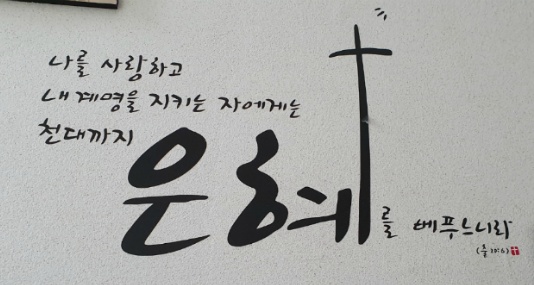 나를 사랑하고
내 계명을 지키는 자에게는
천대까지
은혜를 베푸느니라
(출 20:6)